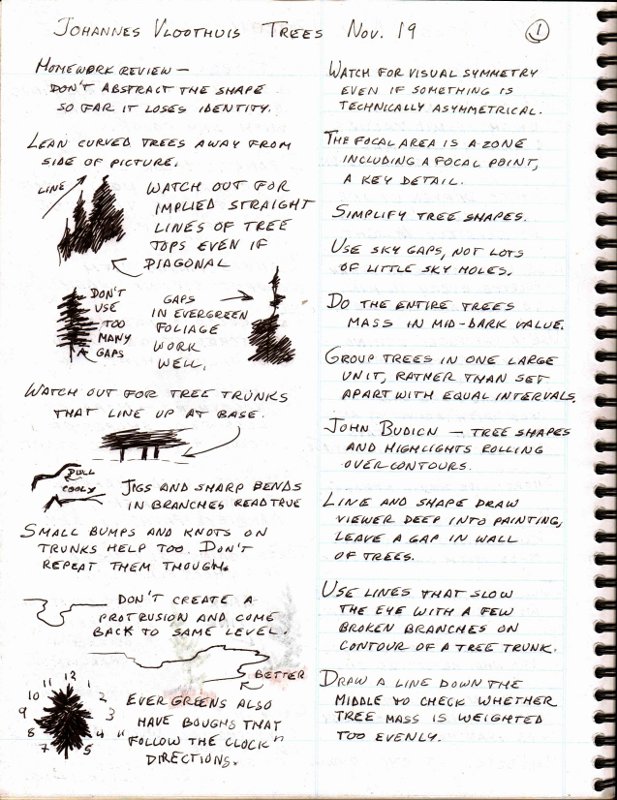 Johannes Vloothuis Trees Nov. 19
1
Homework review –
Don't abstract the shape
so far it loses identity.
Lean curved trees away from
side of picture.
Line
Watch out for
implied straight
lines of tree
tops even if
diagonal
Don't
use
too
many
gaps
Gaps
in evergreen
foliage
work
well.
Watch out for tree trunks
that line up at base.
Dull
Cooly
Jigs and sharp bends
in branches read true
Small bumps and knots on
trunks help too. Don't
repeat them though.
Don't create a
protrusion and come
back to same level.
Better
12
11 1
10 2
9 3
8 4
7 5
Evergreens also
have boughs that
"follow the clock"
directions.
Watch for visual symmetry
even if something is
technically asymmetrical.
The focal area is a zone
including a focal point,
a key detail.
Simplify tree shapes.
Use sky gaps, not lots
of little sky holes.
Do the entire trees
mass in mid-dark value.
Group trees in one large
unit, rather than set
apart with equal intervals.
John Budicn – tree shapes
and highlights rolling
over contours.
Line and shape draw
viewer deep into painting,
leave a gap in wall
of trees.
Use lines that slow
the eye with a few
broken branches on
contour of a tree trunk.
Draw a line down the
middle to check whether
tree mass is weighted
too evenly.